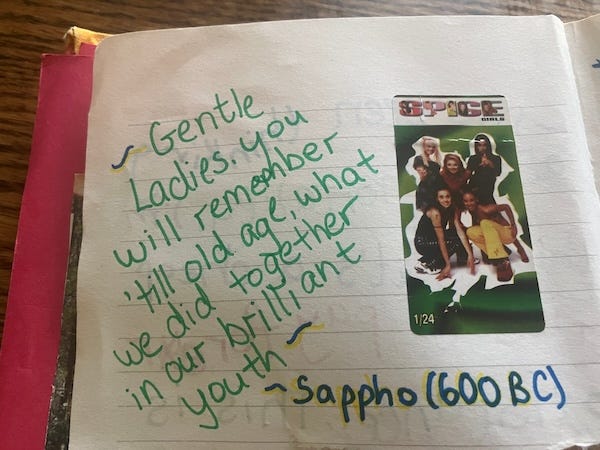 ~ Gentle
Ladies. you
will remember
'till old age, what
we did together
in our brilliant
youth ~
~ Sappho (600 BC)
SPICE
GIRLS
1/24